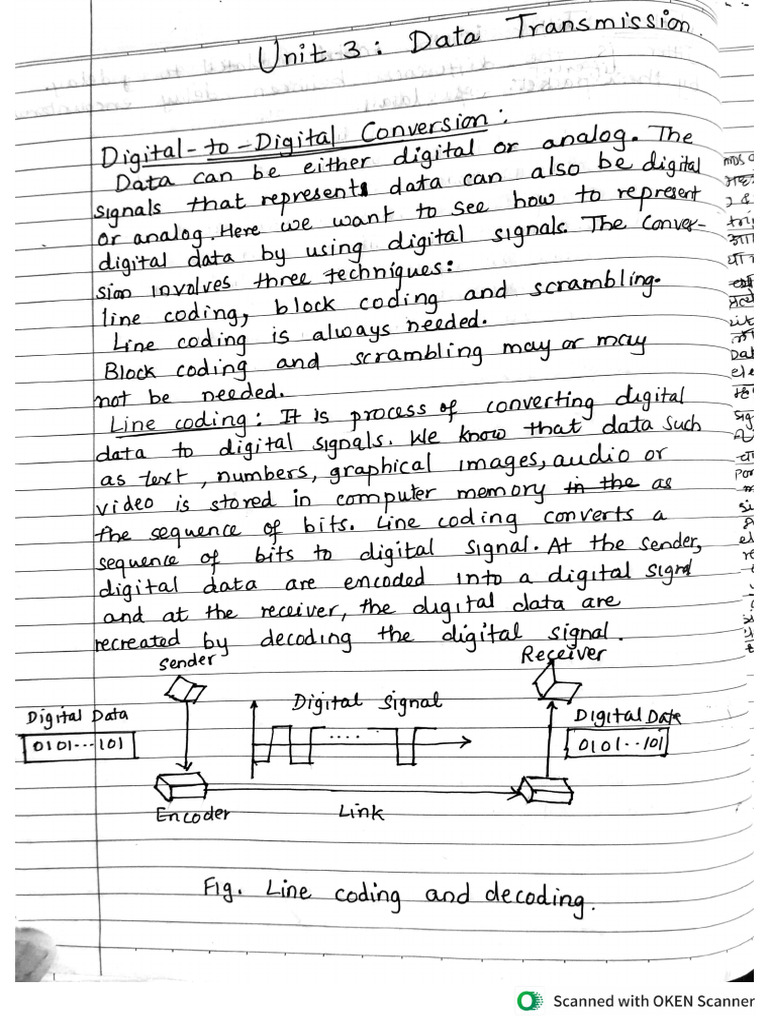 Unit 3: Data Transmission.
Digital-to-Digital Conversion:
Data can be either digital or analog. The
signals that represents data can also be digital
or analog. Here we want to see how to represent
digital data by using digital signals. The conver-
sion involves three techniques:
line coding, block coding and scrambling.
Line coding is always needed.
Block coding and scrambling may or may
not be needed.
Line coding: It is process of converting digital
data to digital signals. We know that data such
as text, numbers, graphical images, audio or
video is stored in computer memory in the as
the sequence of bits. Line coding converts a
sequence of bits to digital signal. At the sender,
digital data are encoded into a digital signal
and at the receiver, the digital data are
recreated by decoding the digital signal.
Sender
Receiver
Digital Signal
Digital Data
Digital Data
0101...101
....
0101..101
Encoder
Link
Fig. Line coding and decoding.
Scanned with OKEN Scanner